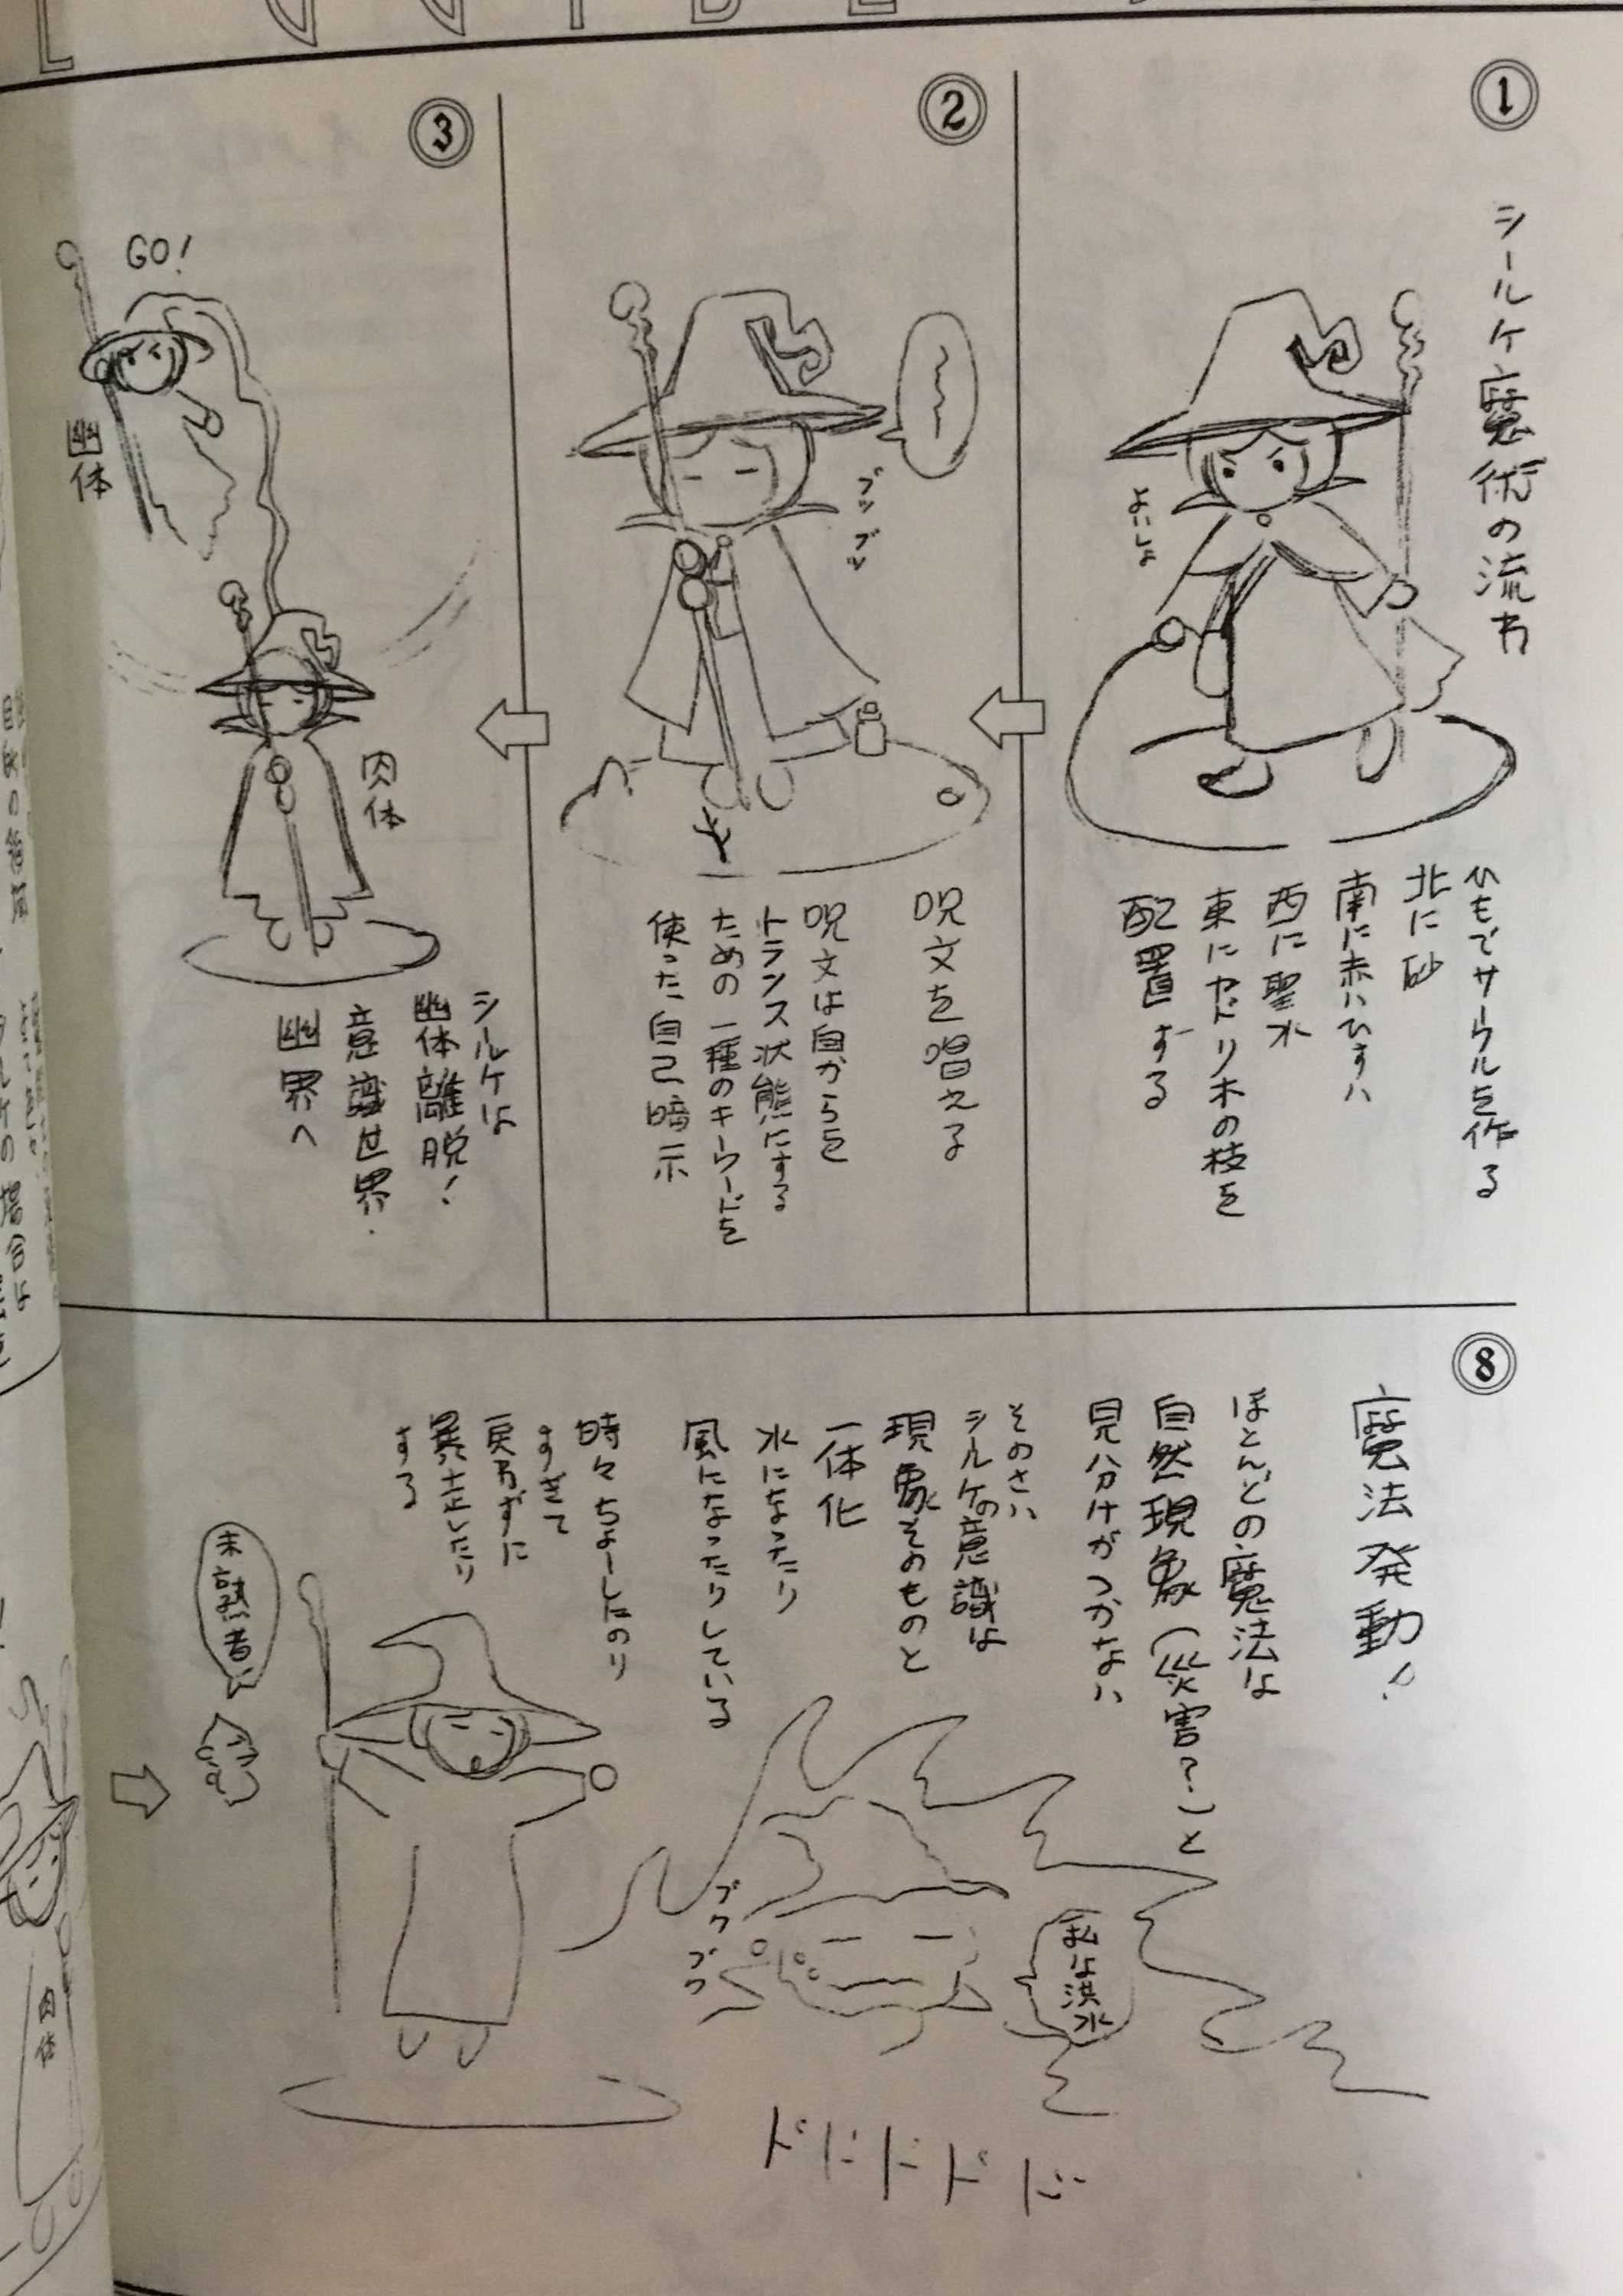 ①
シールケ魔術の流れ
よいしょ
ひもでサークルを作る
北に砂
南に赤い
西に聖水
東にヤドリ木の枝を
配置する
②
ブツブツ
呪文を唱える
呪文は自からを
トランス状態にする
ための一種のキーワードを
使った自己暗示
③
GO!
幽体
肉体
シルケは
幽体離脱！
意識世界.
幽界へ
⑧
魔法発動！
ほとんどの魔法は
自然現象（災害？）と
見分けがつかない
そのさい
シルケの意識は
現象そのものと
一体化
水になったり
風になったりしている
時々ちょーしにのり
すぎて
戻れずに
暴走したり
する
未熟者！
私は洪水
ブクブク
ドドドドド
肉体